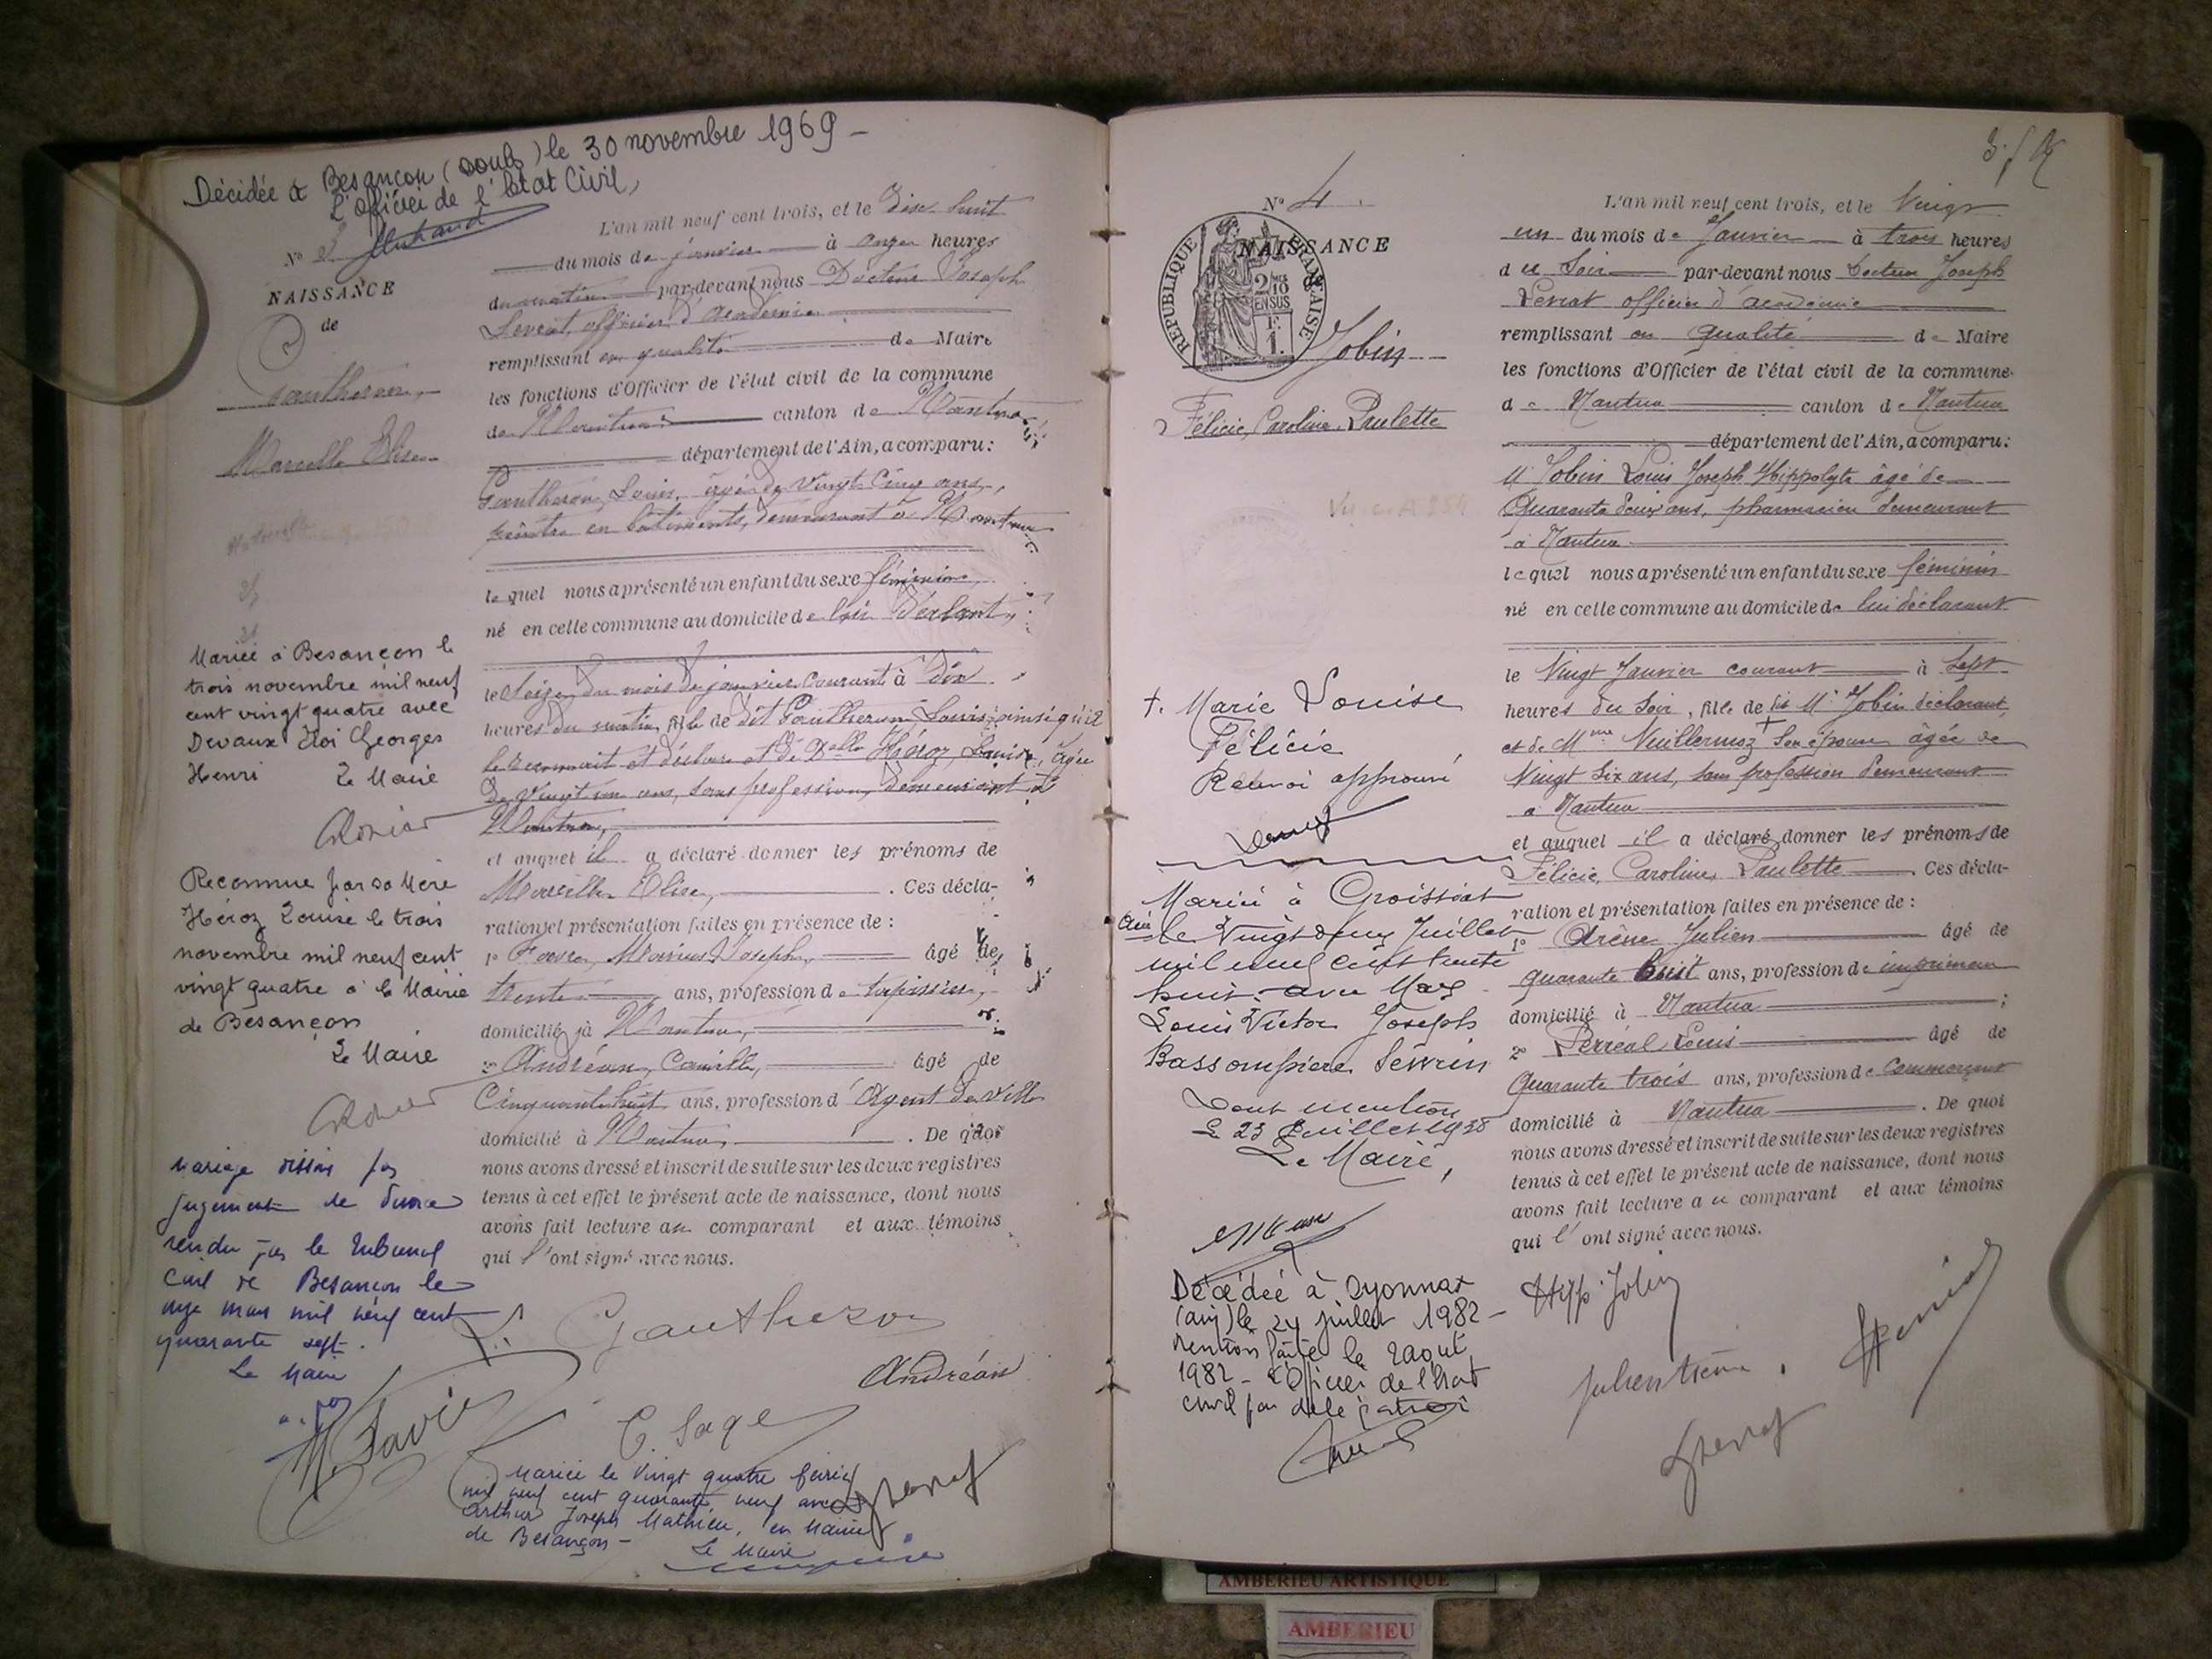 Décidée à Besançon (Doubs) le 30 novembre 1969 –
L'officier de l'Etat Civil,
N° 3
NAISSANCE
de
Gautheron,
Marcelle Elise
Mariée à Besançon le
trois novembre mil neuf
cent vingt quatre avec
Devaux Eloi Georges
Henri Le Maire
Reconnue par sa Mère
Héroz Louise le trois
novembre mil neuf cent
vingt quatre à la Mairie
de Besançon
Le Maire
Mariage dissous par
jugement de divorce
rendu par le tribunal
Civil de Besançon le
onze mars mil neuf cent
quarante sept.
Le Maire
L'an mil neuf cent trois, et le Dix huit
du mois de janvier à onze heures
du matin par-devant nous Docteur Joseph
Levrat, officier d'académie
remplissant en qualité de Maire
les fonctions d'Officier de l'état civil de la commune
de Nantua canton de Nantua
département de l'Ain, a comparu:
Gautheron, Louis, âgé de vingt cinq ans,
peintre en bâtiments, demeurant à Nantua
lequel nous a présenté un enfant du sexe féminin,
né en celle commune au domicile de lui déclarant,
le seize du mois de janvier courant à dix
heures du matin, fille de dit Gautheron Louis ainsi qu'il
le reconnait et déclare et de Dlle Héroz, Louise, âgée
de vingt un ans, sans profession, demeurant à
Nantua,
et auquel il a déclaré donner les prénoms de
Marcelle Elise, . Ces décla-
ration et présentation faites en présence de :
1° Favre, Marius Joseph, âgé de
trente ans, profession de tapissier,
domicilié à Nantua,
2° Andréan, Camille, âgé de
Cinquante huit ans, profession d'Agent de ville
domicilié à Nantua, . De quoi
nous avons dressé et inscrit de suite sur les deux registres
tenus à cet effet le présent acte de naissance, dont nous
avons fait lecture au comparant et aux témoins
qui l'ont signé avec nous.
L. Gautheron
Andréan
M. Favre
C. Sage
Mariée le vingt quatre février
mil neuf cent quarante neuf avec
Arthur Joseph Mathieu, en Mairie
de Besançon –
Le Maire
3
N° 4
NAISSANCE
REPUBLIQUE FRANÇAISE
2/10 EN SUS
F.
1.
Jobin
Félicie, Caroline, Paulette
+. Marie Louise
Félicie
Renvoi approuvé
Mariée à Groissiat
Ain
le Vingt deux Juillet
mil neuf cent trente
huit avec Max
Louis Victor Joseph
Bassompierre Sewrin
Dont mention
Le 23 Juillet 1938
Le Maire,
Décédée à Oyonnax
(ain) le 24 juillet 1982 –
Mention faite le 2 août
1982 – L'Officier de l'Etat
civil par délégation
L'an mil neuf cent trois, et le Vingt
un du mois de Janvier à trois heures
du Soir par-devant nous Docteur Joseph
Levrat officier d'académie
remplissant en qualité de Maire
les fonctions d'Officier de l'état civil de la commune
de Nantua canton de Nantua
département de l'Ain, a comparu:
Mr Jobin Louis Joseph Hippolyte âgé de
Quarante deux ans, pharmacien demeurant
à Nantua
lequel nous a présenté un enfant du sexe féminin
né en celle commune au domicile de lui déclarant
le Vingt Janvier courant à Sept
heures du Soir, fille de dit Mr Jobin déclarant,
et de Mme Vuillermoz + Son épouse âgée de
Vingt Six ans, sans profession demeurant
à Nantua
et auquel il a déclaré donner les prénoms de
Félicie, Caroline, Paulette . Ces décla-
ration et présentation faites en présence de :
1° Arène Julien âgé de
quarante huit ans, profession de imprimeur
domicilié à Nantua ;
2° Perréal Louis âgé de
Quarante trois ans, profession de Commerçant
domicilié à Nantua . De quoi
nous avons dressé et inscrit de suite sur les deux registres
tenus à cet effet le présent acte de naissance, dont nous
avons fait lecture au comparant et aux témoins
qui l'ont signé avec nous.
Hipp. Jobin
Julien Arène
AMBERIEU ARTISTIQUE
AMBERIEU